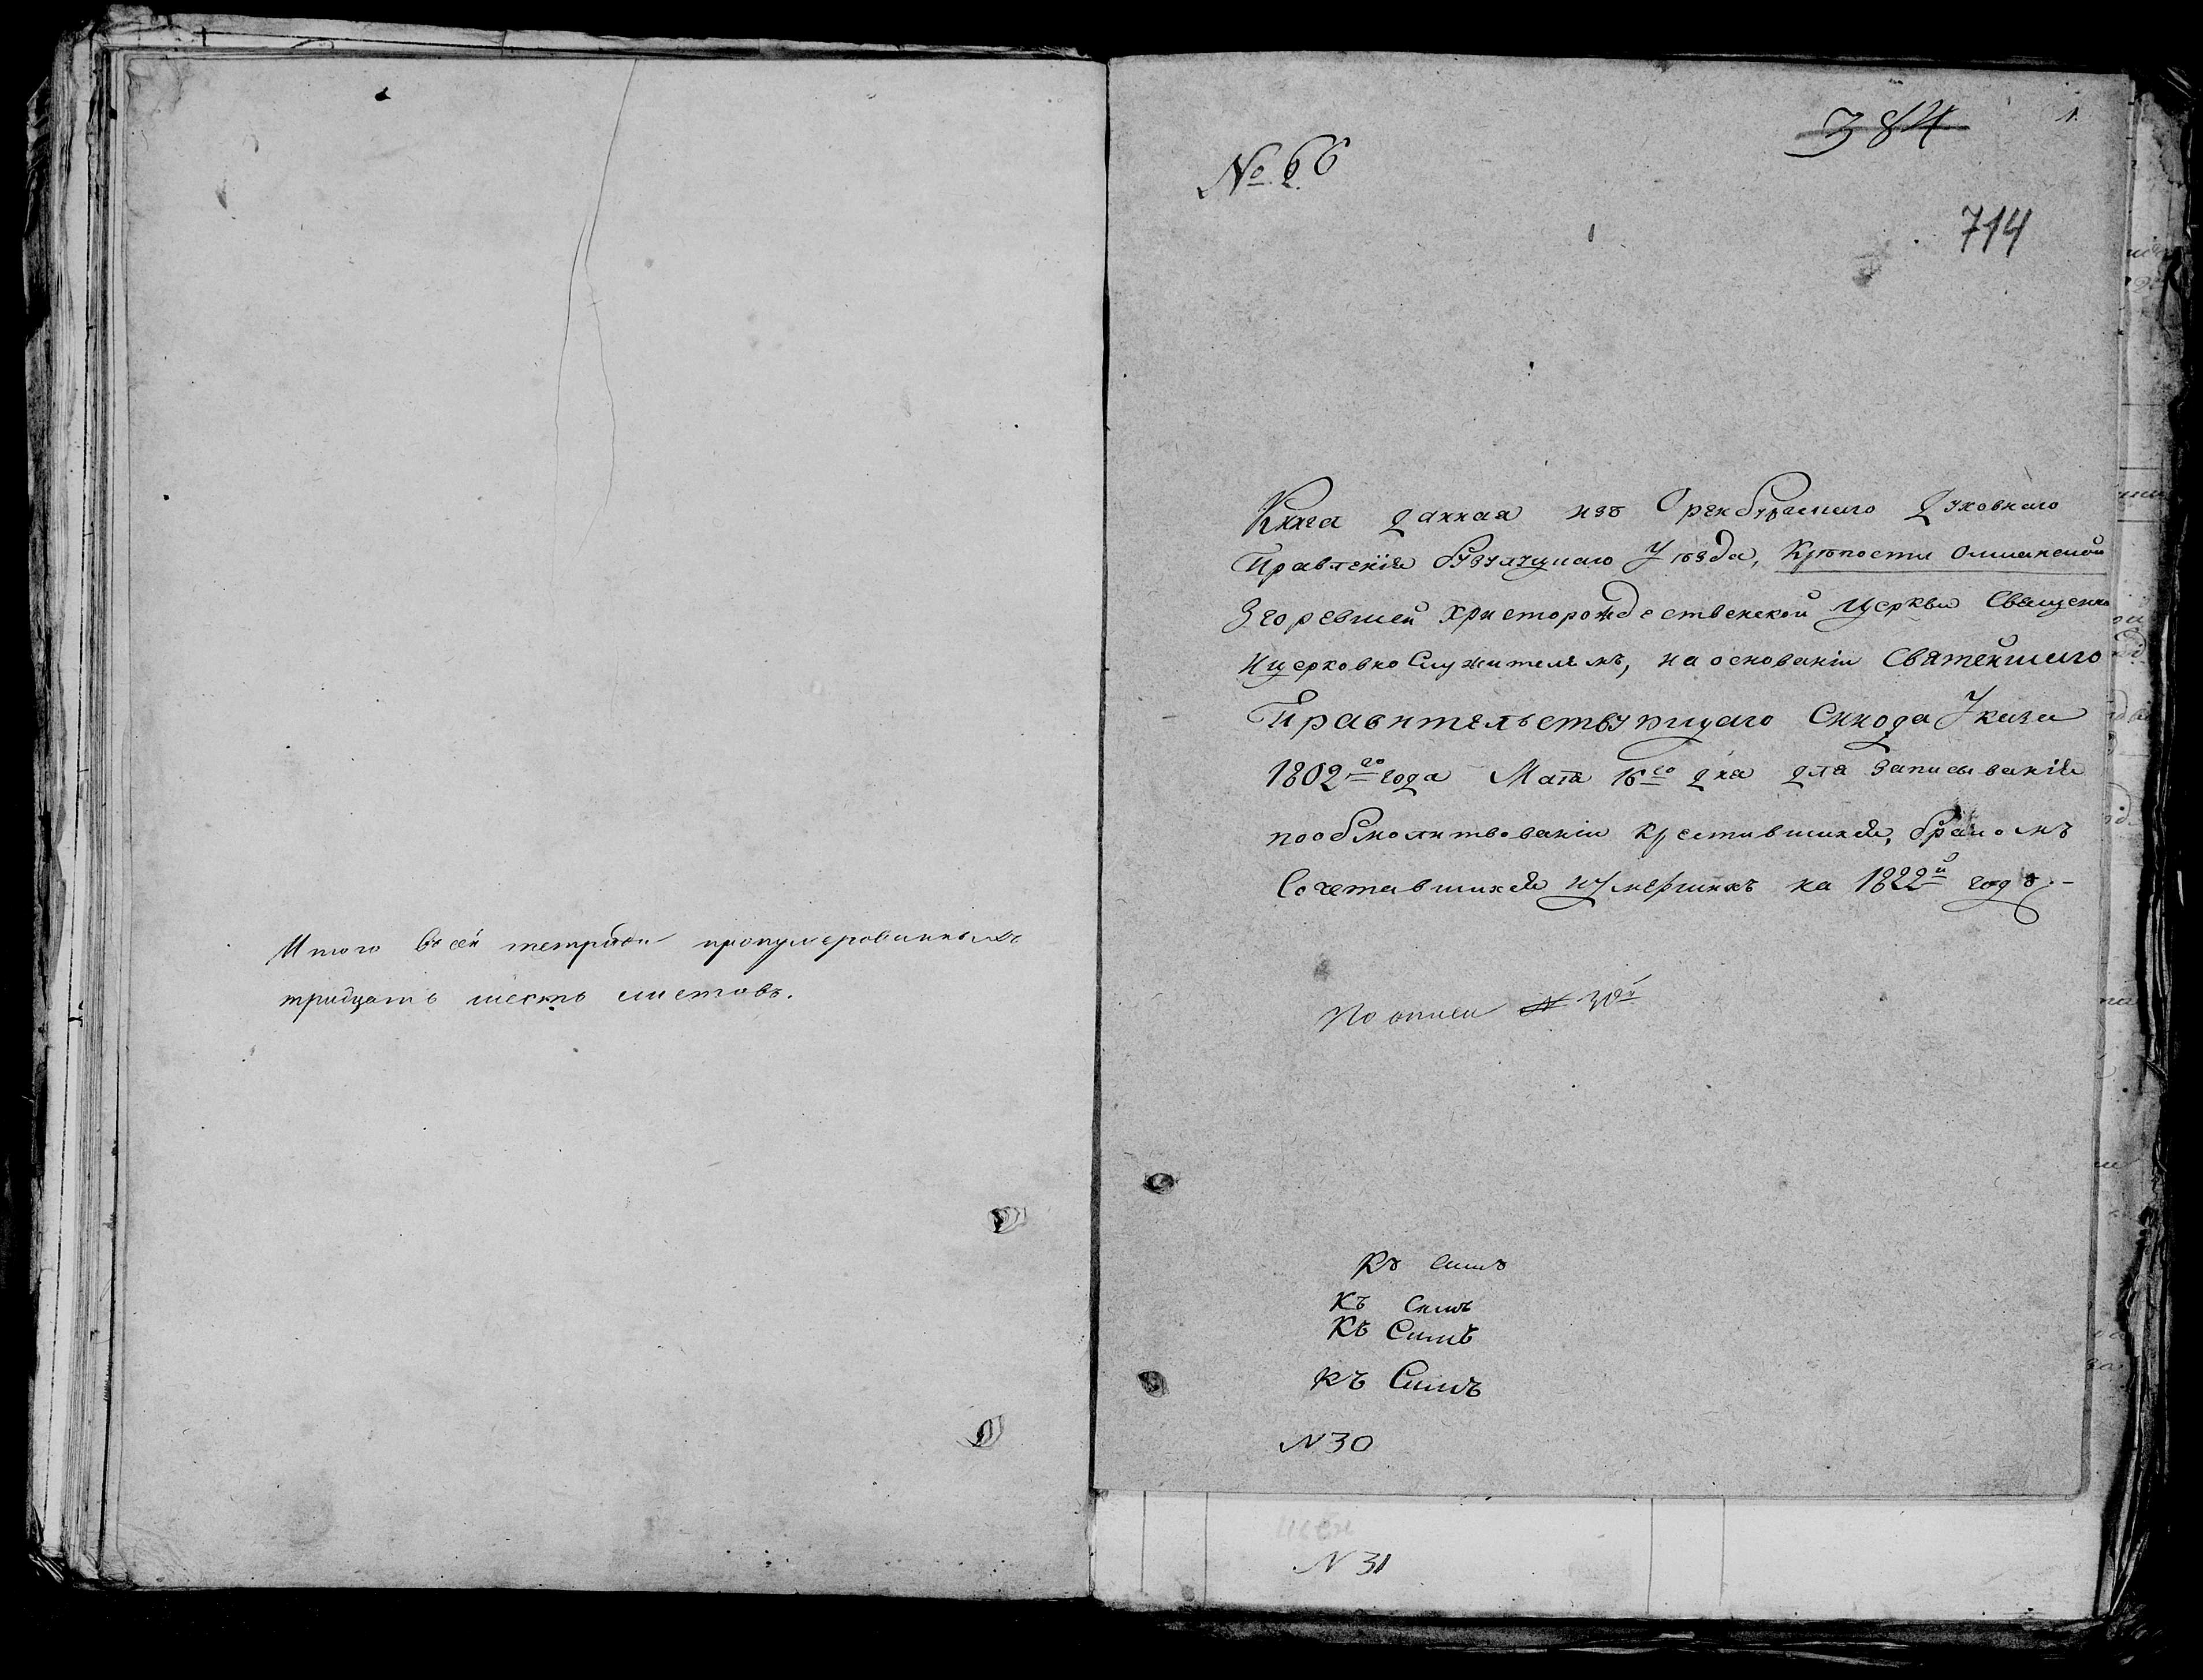 Итого в сей тетради пронумерованныхъ
тридцать шесть листовъ.
384
1.
№ 66
714
Книга данная изъ Оренбургскаго Духовнаго
Правленія Бузулуцкаго Уѣзда, Крѣпости Ольшанской
Згоревшей Христорождественской Церкви Священно
И церковно Служителямъ, на основаніи Святейшаго
Правительствующаго Синода Указа
1802го года Маія 16го дня для Записыванія
по обмолитвованіи Крестившихся, бракомъ
Сочетавшихся и умершихъ на 1822й годъ.-
По описи № 30й
Къ Симъ
Къ Симъ
Къ Симъ
Къ Симъ
N 30
N 31